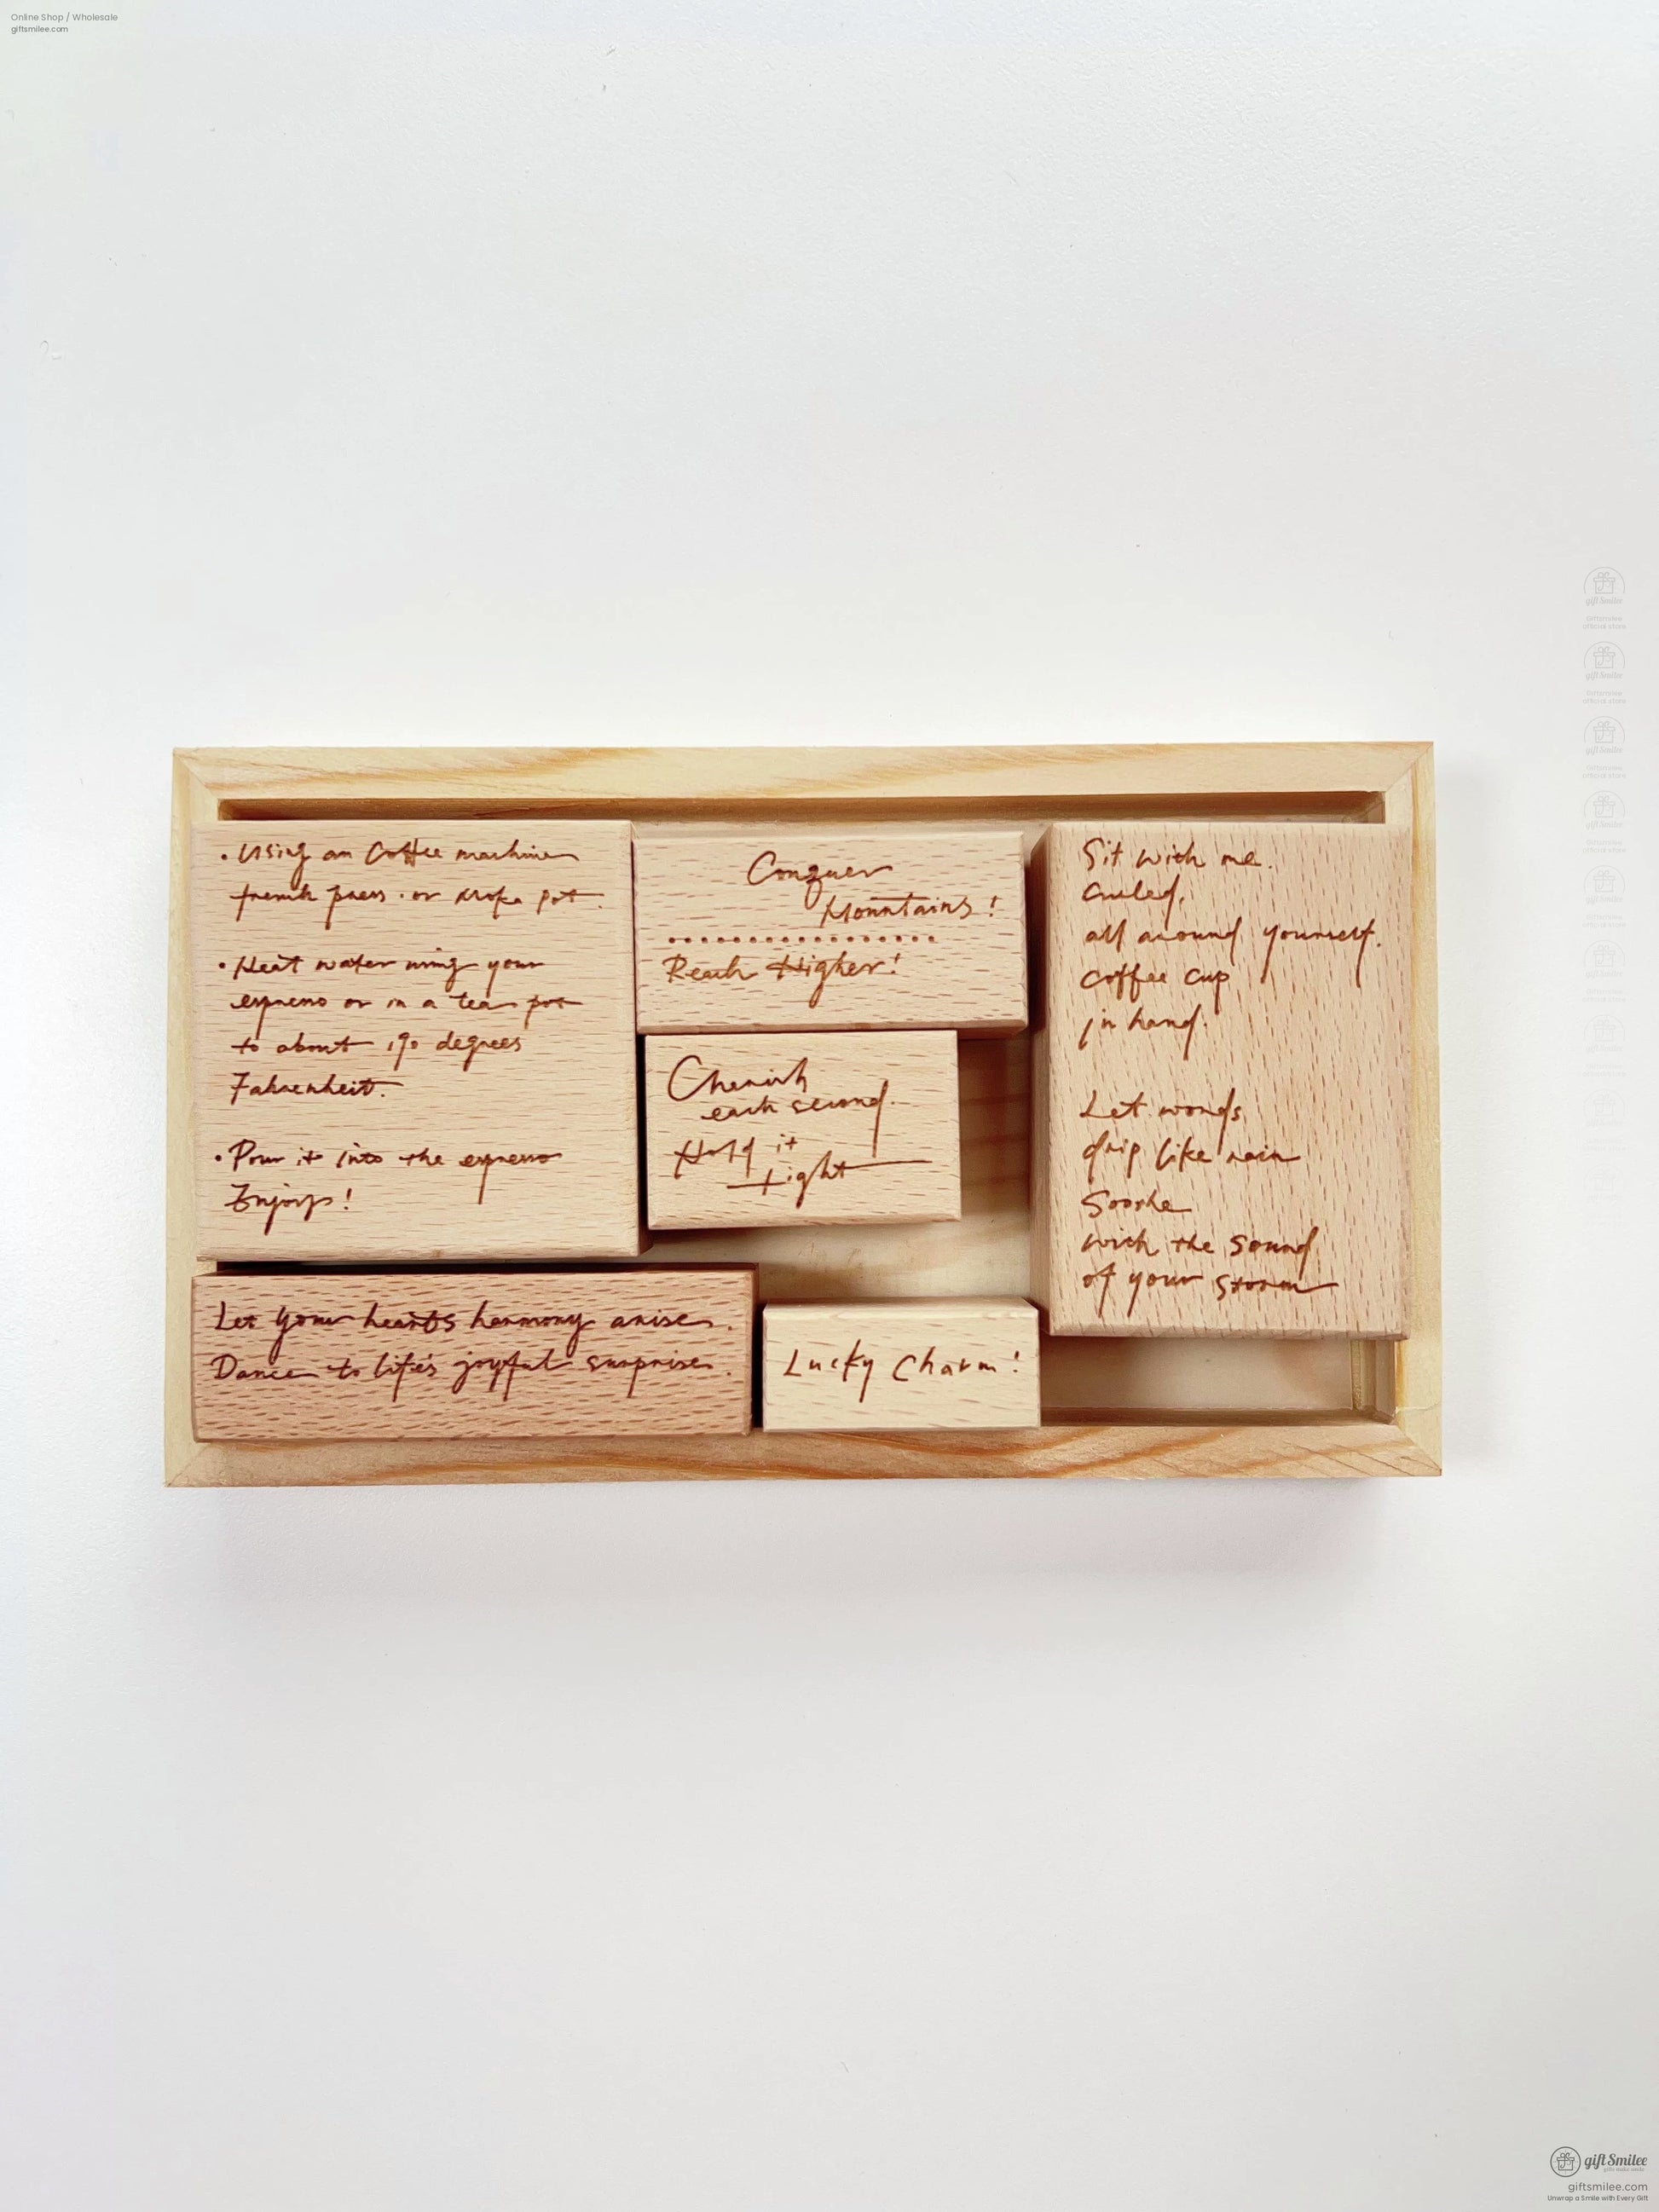 Online Shop / Wholesale
giftsmilee.com
• Using an Coffee machine
french press · or Moka pot.
• Heat water using your
espresso or in a tea pot
to about 190 degrees
Fahrenheit.
• Pour it into the espresso
Enjoys!
Conquer
Mountains!
Reach Higher!
Cherish
each second.
Hold it
tight
Sit with me.
Curled,
all around yourself.
coffee cup
in hand.
Let words,
drip like rain
Soothe
with the sound
of your storm
Let your hearts harmony arise.
Dance to life's joyful surprise.
Lucky Charm!
gift Smilee
Giftsmilee
official store
gift Smilee
Giftsmilee
official store
gift Smilee
Giftsmilee
official store
gift Smilee
giftsmilee.com
Unwrap a Smile with Every Gift